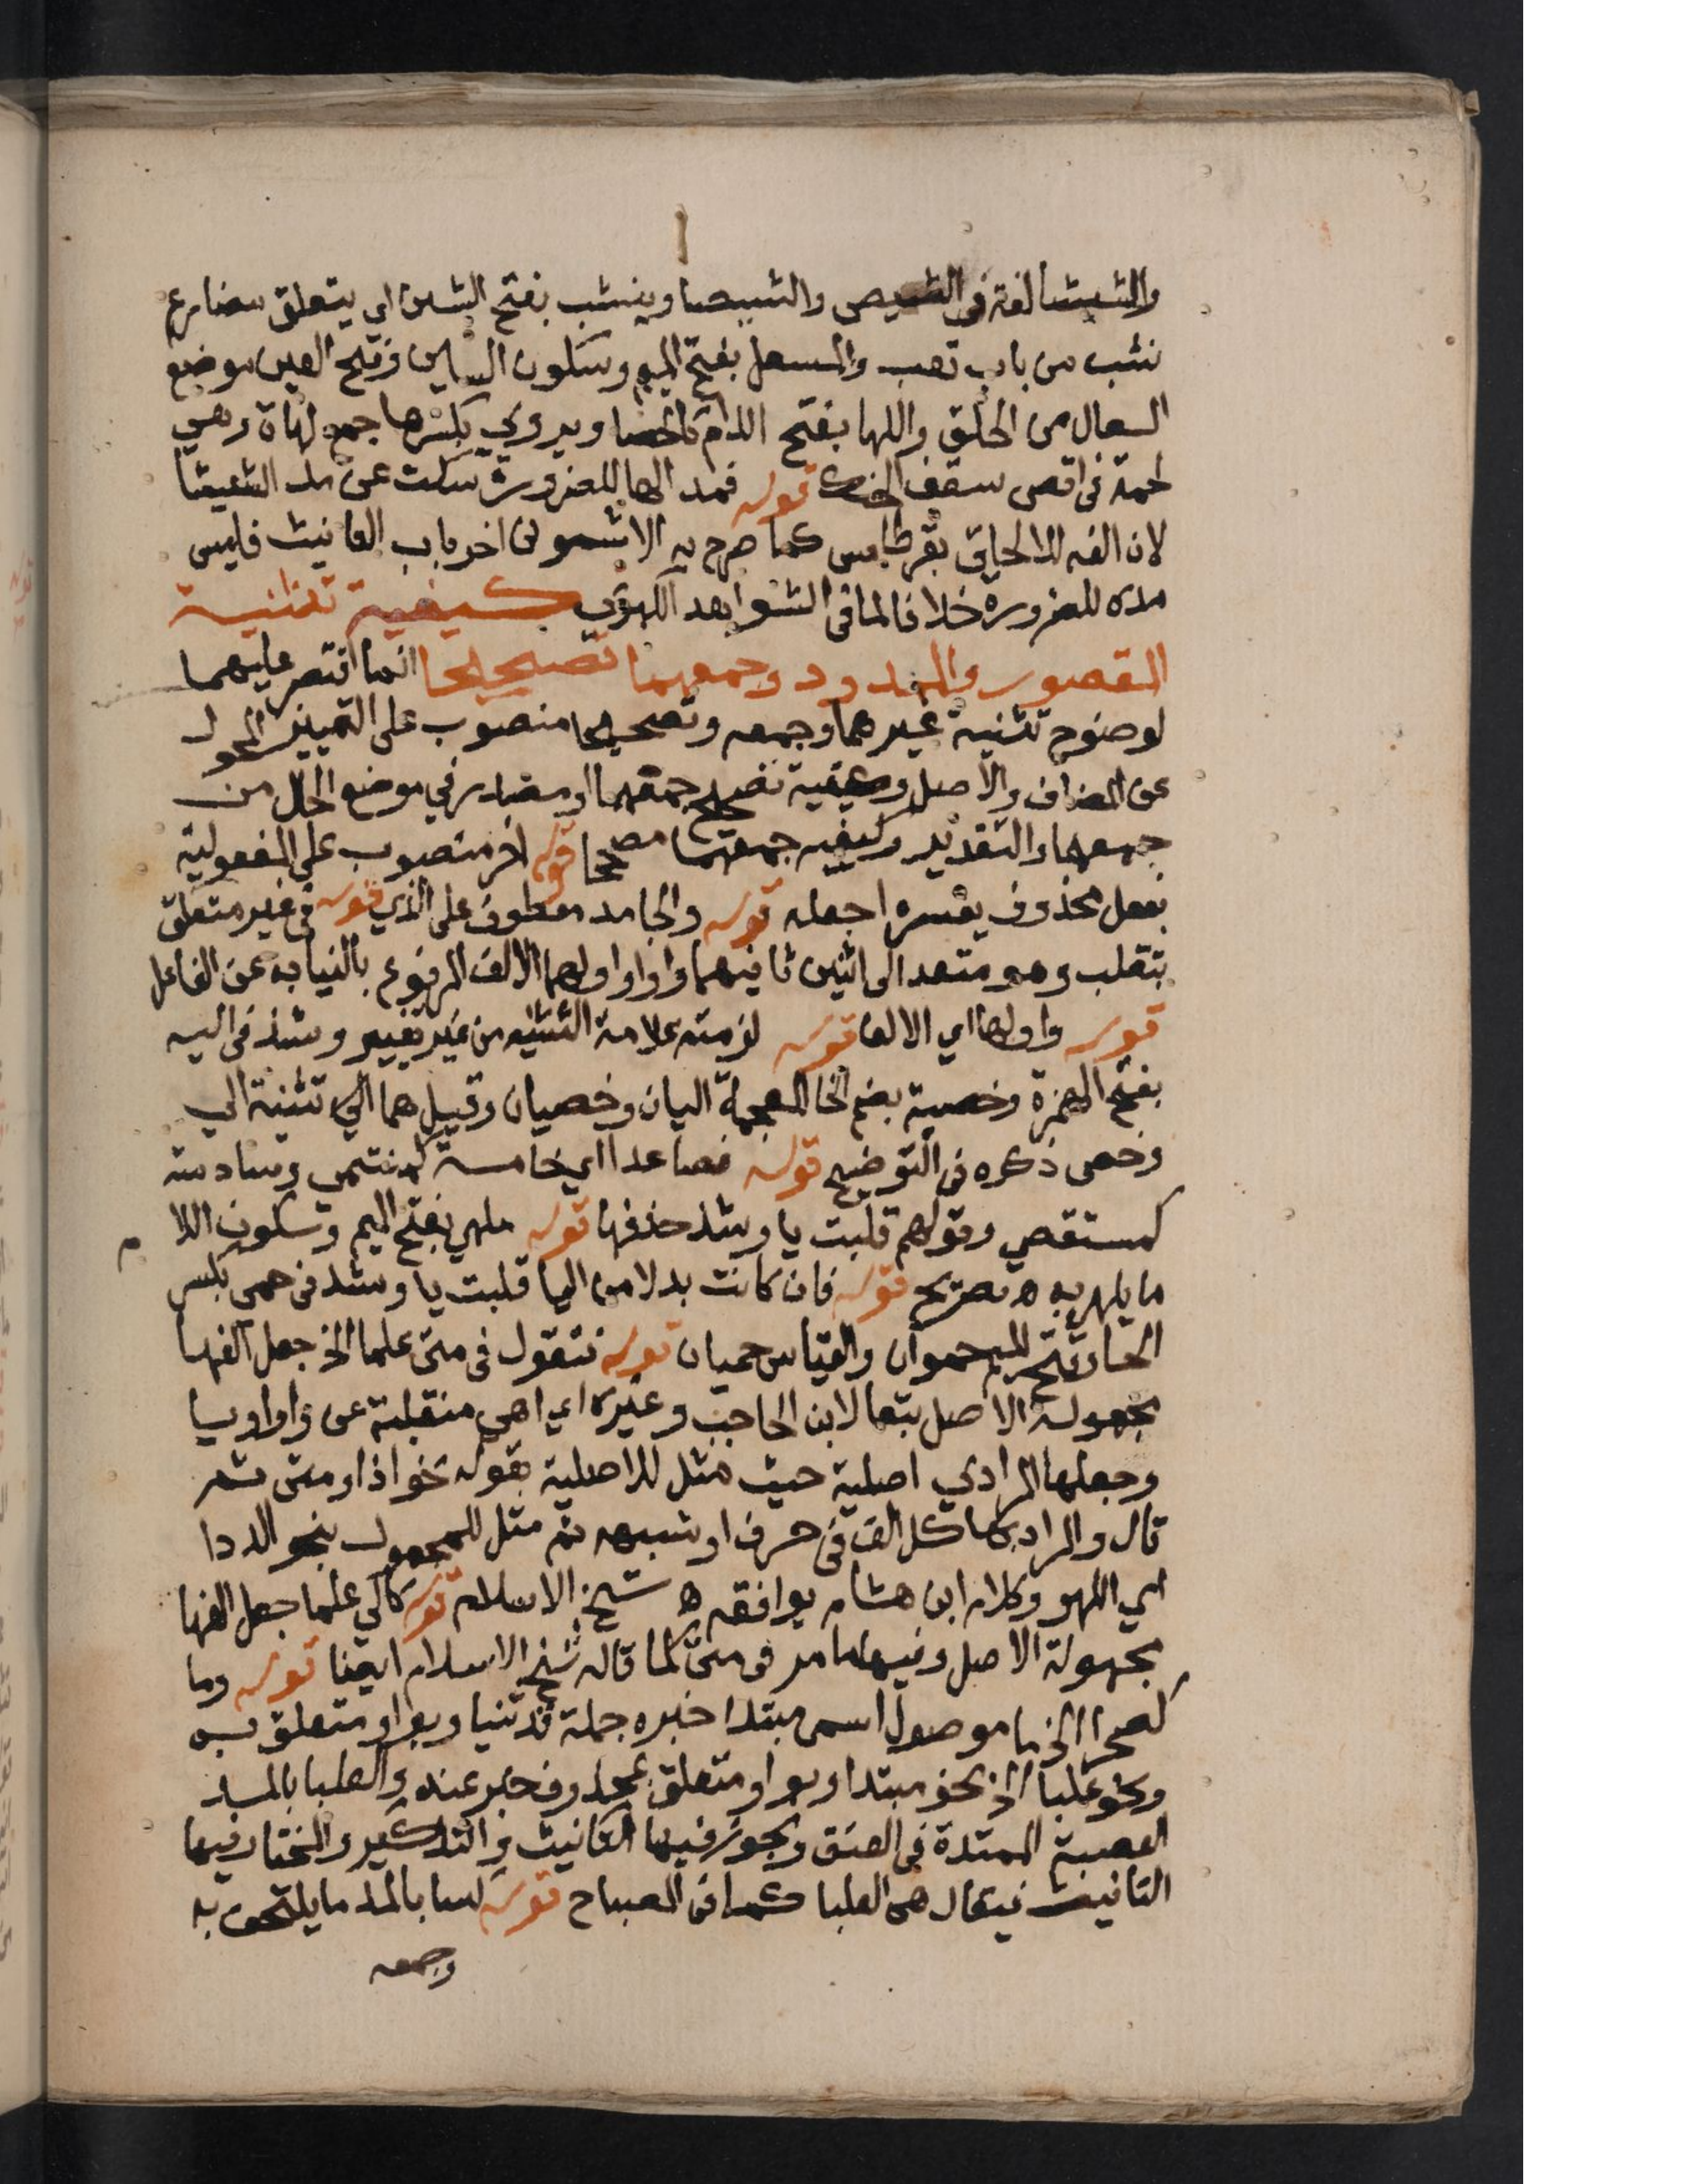 والشيشا لغة فى الشيص والشيصا وينشب بفتح الشين اي يتعلق مضارع
نشب من باب تعب والمسعل بفتح الميم وسكون السين وفتح العين موضع
السعال من الحلق واللها بفتح اللام كالحصا ويروي بكسرها جمع لهاة وهي
لحمة فى اقصى سقف الحنك قوله فمد اللها للضرورة سكت عن مد الشيشا
لان الفه للالحاق بقرطاس كما صرح به الاشمونى اخر باب التانيث فليس
مده للضرورة خلافا لما فى الشواهد الكبرى كيفية تثنية
المقصور والممدود وجمعهما تصحيحا انما اقتصر عليهما
لوضوح تثنية غيرهما وجمعه وتصحيحا منصوب على التمييز المحول
عن المضاف والاصل وكيفية تصحيح جمعهما او مصدر في موضع الحال من
جمعهما والتقدير وكيفيه جمعهما مصححا قوله اخر منصوب على المفعولية
بفعل محذوف يفسره اجعله قوله والجامد معطوف على الذي قوله فى غير متعلق
بتقلب وهو متعد الى اثنين ثانيهما واوا واولهما الالف المرفوع بالنيابه عن الفاعل
قوله واولها اي الالف قوله لزمته علامة التثنيه من غير تغيير وشذ فى اليه
بفتح الهمزة وخصية بضم الخا المعجمة اليان وخصيان وقيل هما الى تثنية الي
وخصى ذكره فى التوضيح قوله فصاعدا اي خامسة كمنتمى وسادسة
كمستقصي وقولهم قلبت يا وشذ حذفها قوله ملهي بفتح الميم وسكون اللام
ما يلهى به ه تصريح قوله فان كانت بدلا من اليا قلبت يا وشذ فى حمى بكسر
الحا وفتح الميم حموان والقياس حميان قوله فتقول فى متى علما الخ جعل الفها
مجهولة الاصل تبعا لابن الحاجب وغيره اي اهي منقلبة عن واو او يا
وجعلها المرادي اصلية حيث مثل للاصلية بقوله نحو اذا ومتى ثم
قال والمراد بها كل الف فى حرف او شبهه ثم مثل للمجهول بنحو الددا
اي اللهو وكلام ابن هشام يوافقه ه شيخ الاسلام قوله كالي علما جعل الفها
مجهولة الاصل وفيها ما مر فى متى لما قاله شيخ الاسلام ايضا قوله وما
كصحرا الخ ما موصول اسمى مبتدا خبره جملة قد ثنيا وبواو متعلق به
ونحو علبا الخ نحو مبتدا وبواو متعلق بمحذوف خبر عنه والعلبا بالمد
العصبة الممتدة في العنق ويجوز فيها التانيث والتذكير والمختار فيها
التانيث فيقال هى العلبا كما فى المصباح قوله كسا بالمد ما يلتحف به
وجمعه